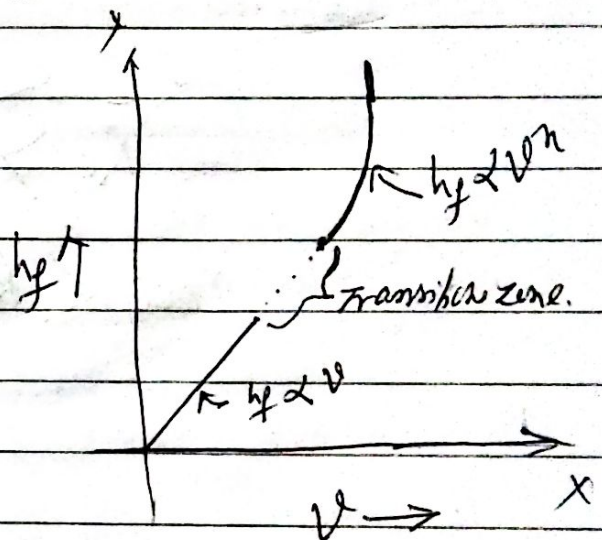 y
h_f ∝ v^n
h_f ↑
Transition zone.
h_f ∝ v
X
v →